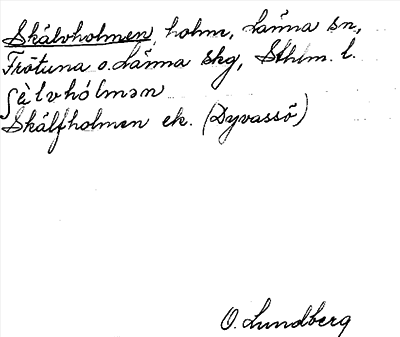 Skälvholmen, holm, Länna sn,
Frötuna o. Länna skg, Sthlm. l.
ʃèlvhólmən
Skälfholmen ek. (Dyvassö)
O. Lundberg